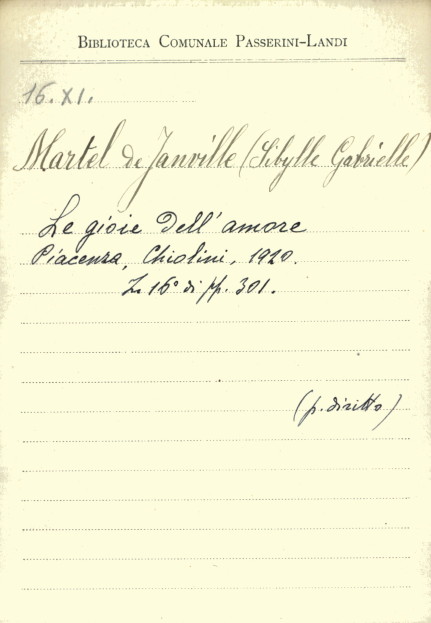 BIBLIOTECA COMUNALE PASSERINI-LANDI
16.XI.
Martel de Janville (Sibylle Gabrielle)
Le gioie dell'amore
Piacenza, Chiolini, 1920.
In 16° di pp. 301.
(p. diritto)